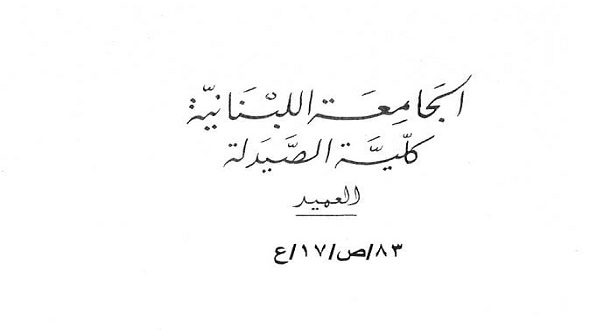 الجَامِعَة اللبْنَانيَّة
كلِّيَّة الصَّيدَلة
العميد
٨٣/ص/١٧/ع